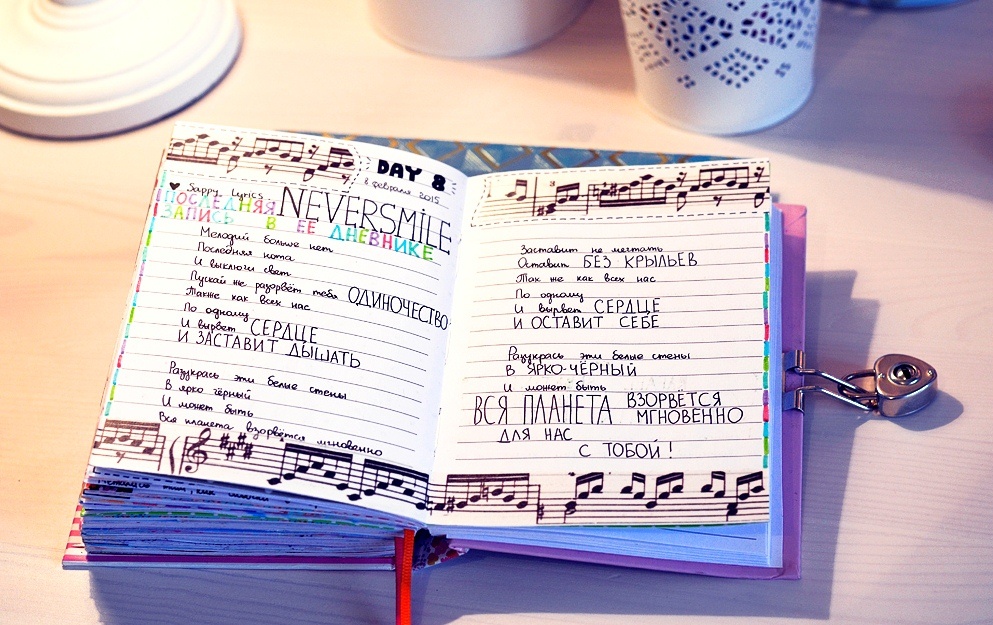 DAY 8
8 февраля 2015
Sappy Lyrics
NEVERSMILE
ПОСЛЕДНЯЯ
ЗАПИСЬ В ЕЕ ДНЕВНИКЕ
Мелодий больше нет
Последняя нота
И выключи свет
Пускай не разорвёт тебя ОДИНОЧЕСТВО
Также как всех нас
По одному
И вырвет СЕРДЦЕ
И ЗАСТАВИТ ДЫШАТЬ
Разукрась эти белые стены
В ярко чёрный
И может быть
Вся планета взорвётся мгновенно
Заставит не мечтать
Оставит БЕЗ КРЫЛЬЕВ
Так же как всех нас
По одному
И вырвет СЕРДЦЕ
И ОСТАВИТ СЕБЕ
Разукрась эти белые стены
В ЯРКО-ЧЁРНЫЙ
И может быть
ВСЯ ПЛАНЕТА ВЗОРВЁТСЯ
МГНОВЕННО
ДЛЯ НАС
С ТОБОЙ!